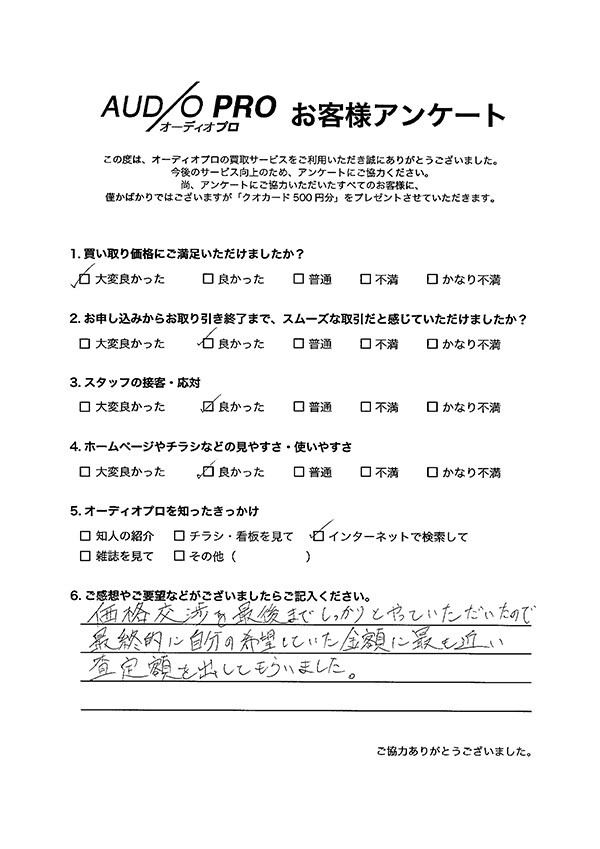 AUDIO PRO お客様アンケート
オーディオプロ
この度は、オーディオプロの買取サービスをご利用いただき誠にありがとうございました。
今後のサービス向上のため、アンケートにご協力ください。
尚、アンケートにご協力いただいたすべてのお客様に、
僅かばかりではございますが「クオカード500円分」をプレゼントさせていただきます。
1. 買い取り価格にご満足いただけましたか？
☑ 大変良かった □ 良かった □ 普通 □ 不満 □ かなり不満
2. お申し込みからお取り引き終了まで、スムーズな取引だと感じていただけましたか？
□ 大変良かった ☑ 良かった □ 普通 □ 不満 □ かなり不満
3. スタッフの接客・応対
□ 大変良かった ☑ 良かった □ 普通 □ 不満 □ かなり不満
4. ホームページやチラシなどの見やすさ・使いやすさ
□ 大変良かった ☑ 良かった □ 普通 □ 不満 □ かなり不満
5. オーディオプロを知ったきっかけ
□ 知人の紹介 □ チラシ・看板を見て ☑ インターネットで検索して
□ 雑誌を見て □ その他（　　　　　）
6. ご感想やご要望などがございましたらご記入ください。
価格交渉を最後までしっかりとやっていただいたので
最終的に自分の希望していた金額に最も近い
査定額を出してもらいました。
ご協力ありがとうございました。